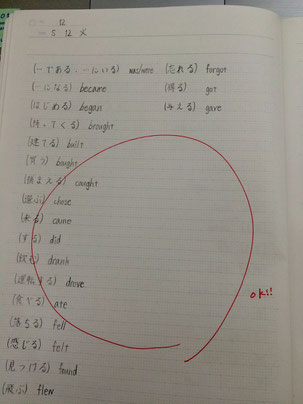 12
5 12
(〜である；〜にいる) was/were
(〜になる) became
(はじめる) began
(持ってくる) brought
(建てる) built
(買う) bought
(捕まえる) caught
(選ぶ) chose
(来る) came
(する) did
(飲む) drank
(運転する) drove
(食べる) ate
(落ちる) fell
(感じる) felt
(見つける) found
(飛ぶ) flew
(忘れる) forgot
(得る) got
(与える) gave
OK!!